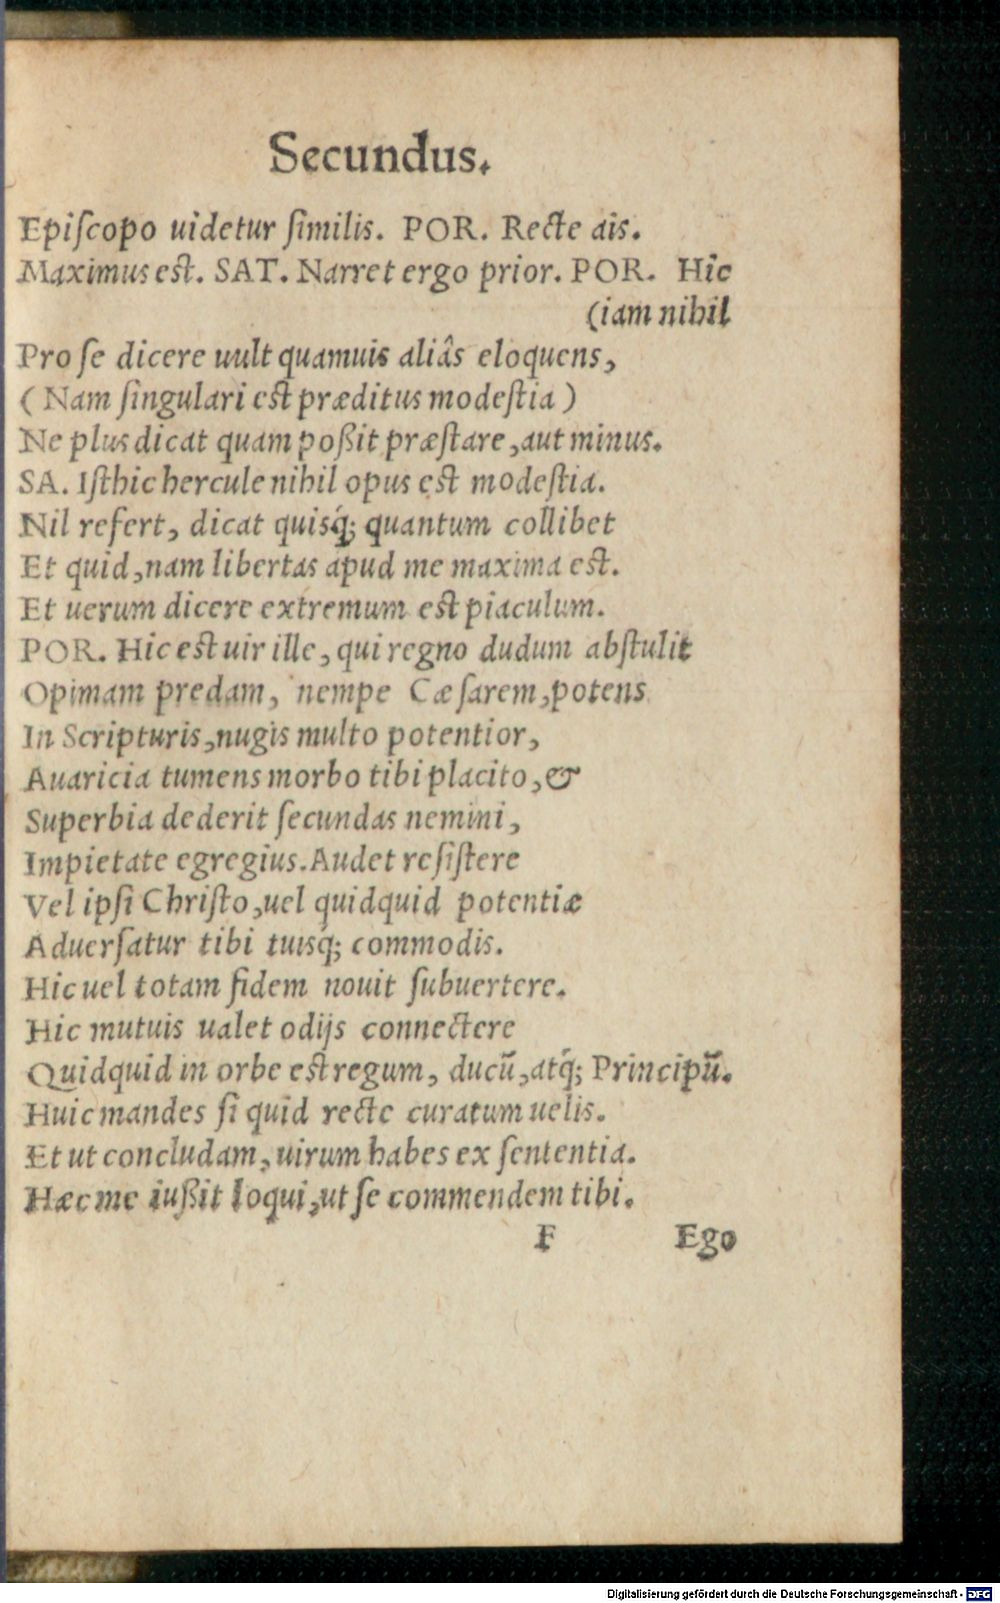 Secundus.
Epiſcopo uidetur ſimilis. POR. Recte ais.
Maximus est. SAT. Narret ergo prior. POR. Hic
(iam nihil
Pro ſe dicere uult quamuis aliâs eloquens,
( Nam ſingulari est præditus modeſtia )
Ne plus dicat quam poßit præſtare, aut minus.
SA. Iſthic hercule nihil opus est modeſtia.
Nil refert, dicat quisq́; quantum collibet
Et quid, nam libertas apud me maxima est.
Et uerum dicere extremum est piaculum.
POR. Hic est uir ille, qui regno dudum abſtulit
Opimam predam, nempe Cæſarem, potens
In Scripturis, nugis multo potentior,
Auaricia tumens morbo tibi placito, &
Superbia dederit ſecundas nemini,
Impietate egregius. Audet reſiſtere
Vel ipſi Chriſto, uel quidquid potentiæ
Aduerſatur tibi tuisq́; commodis.
Hic uel totam fidem nouit ſubuertere.
Hic mutuis ualet odijs connectere
Quidquid in orbe est regum, ducū, atq́; Principū.
Huic mandes ſi quid recte curatum uelis.
Et ut concludam, uirum habes ex ſententia.
Hæc me iußit loqui, ut ſe commendem tibi.
F Ego
Digitalisierung gefördert durch die Deutsche Forschungsgemeinschaft - DFG